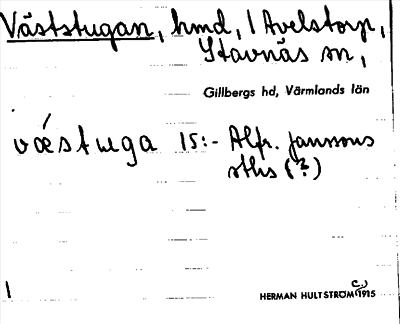 Väststugan, hmd, / Avelstorp,
Stavnäs sn,
Gillbergs hd, Värmlands län
vǽstuga 15:- Alfr. Janssons
sths (?)
1
HERMAN HULTSTRÖM (c.) 1915